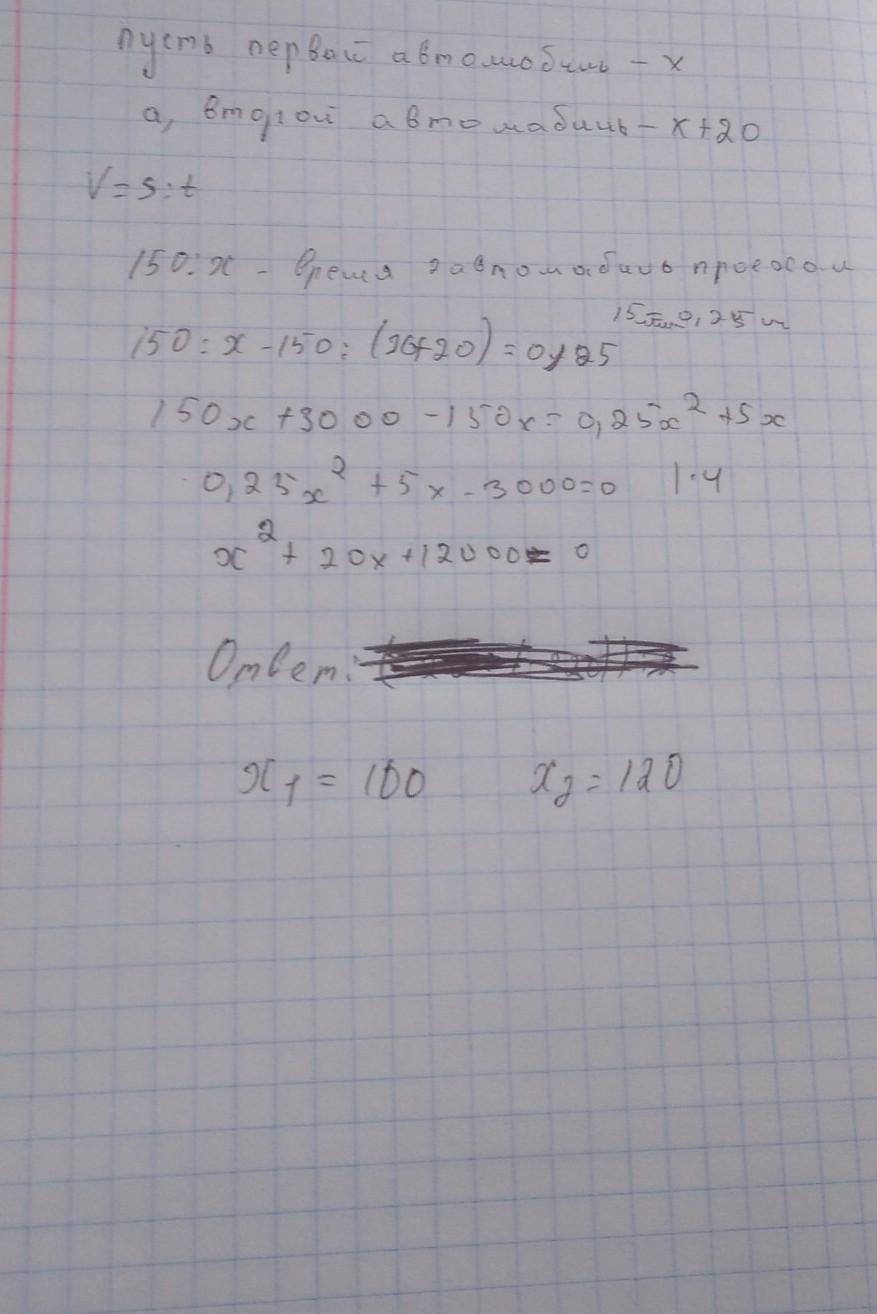 пусть первый автомобиль - x
а, второй автомабиль - x+20
V=s:t
150:x - время 2 автомабиль проехал
15 мин 0,25 ч
150:x-150:(x+20)=0,25
150x+3000-150x=0,25x²+5x
0,25x²+5x-3000=0 |·4
x²+20x+12000=0
Ответ:
x₁=100 x₂=120